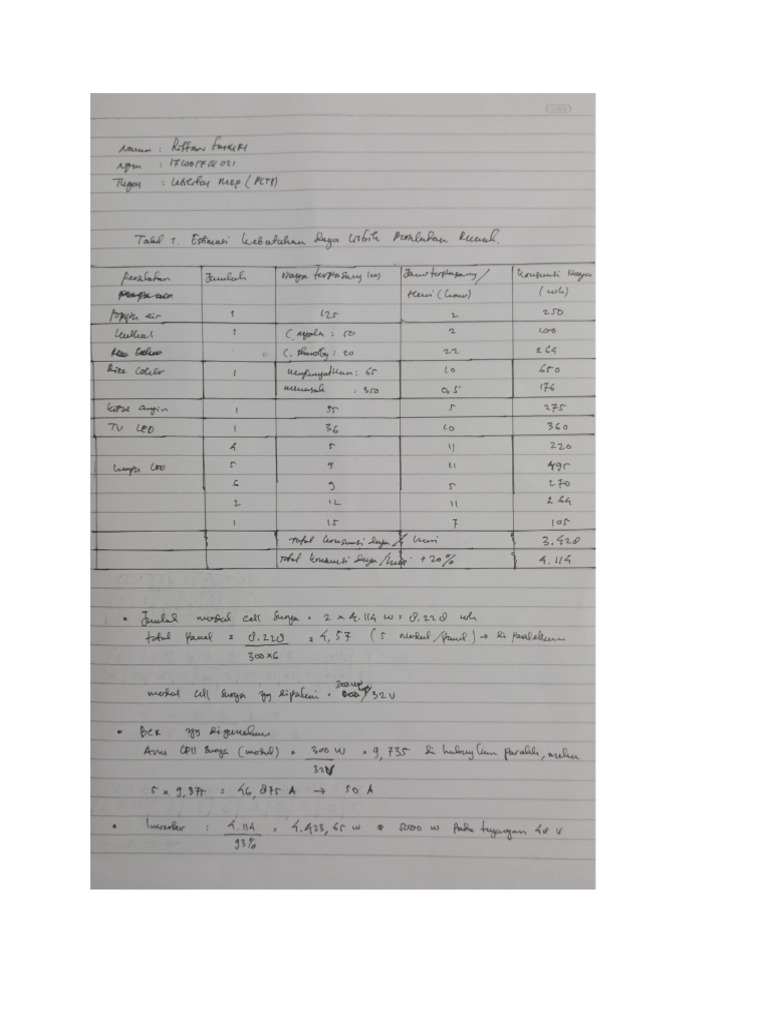 Nama :
Npm :
Tugas : Utilitas MEP (PLTS)
Tabel 1. Estimasi Kebutuhan Daya Listrik Peralatan Rumah.
Peralatan Jumlah Daya terpasang (w) Jam terpasang/ Konsumsi Daya
Hari (hour) (wh)
Pompa air 1 125 2 250
Kulkas 1 C. nyala : 50 2 100
C. standby : 20 22 264
Rice Cooker 1 menghangatkan : 65 10 650
memasak : 350 0,5 176
Kipas angin 1 55 5 275
TV LED 1 36 10 360
4 5 11 220
Lampu LED 5 9 11 495
6 9 5 270
2 12 11 264
1 15 7 105
Total konsumsi daya / hari 3.428
Total konsumsi daya/hari + 20% 4.114
• Jumlah modul cell surya = 2 x 4.114 w = 8.228 wh
total panel = 8.228 = 4,57 (5 modul/panel) →
300x6
modul cell surya yg dipakai = 300 wp/32V
• BCR yg digunakan
Arus cell surya (modul) = 300 W = 9,735 di hubungkan paralel, maka
32V
5 x 9,375 = 46,875 A → 50 A
• Inverter : 4.114 = 4.423,65 w = 5000 w pada tegangan 48 V
93%